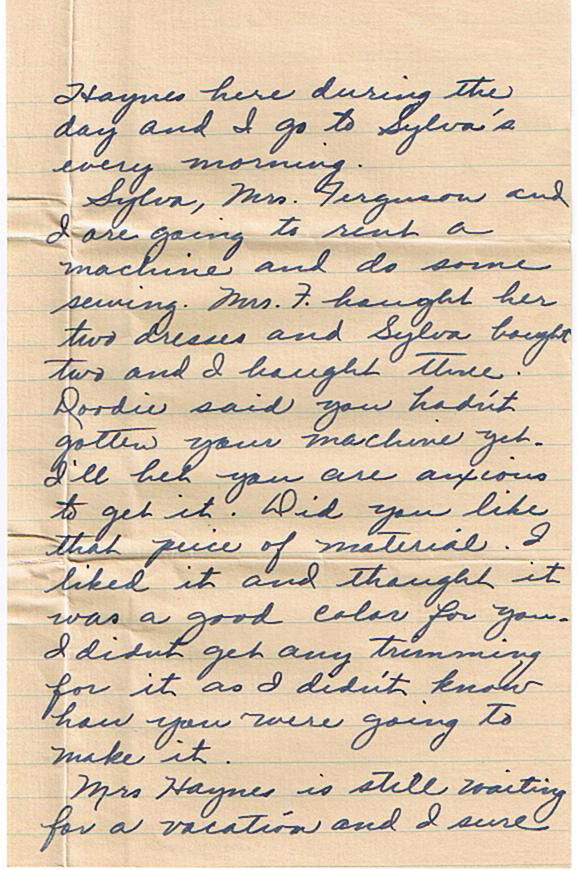 Haynes here during the
day and I go to Sylva's
every morning.
Sylva, Mrs. Ferguson and
I are going to rent a
machine and do some
sewing. Mrs. F. bought her
two dresses and Sylva bought
two and I bought three.
Doodie said you hadn't
gotten your machine yet.
I'll bet you are anxious
to get it. Did you like
that peice of material. I
liked it and thought it
was a good color for you.
I didnt get any trimming
for it as I didn't know
how you were going to
make it.
Mrs Haynes is still waiting
for a vacation and I sure